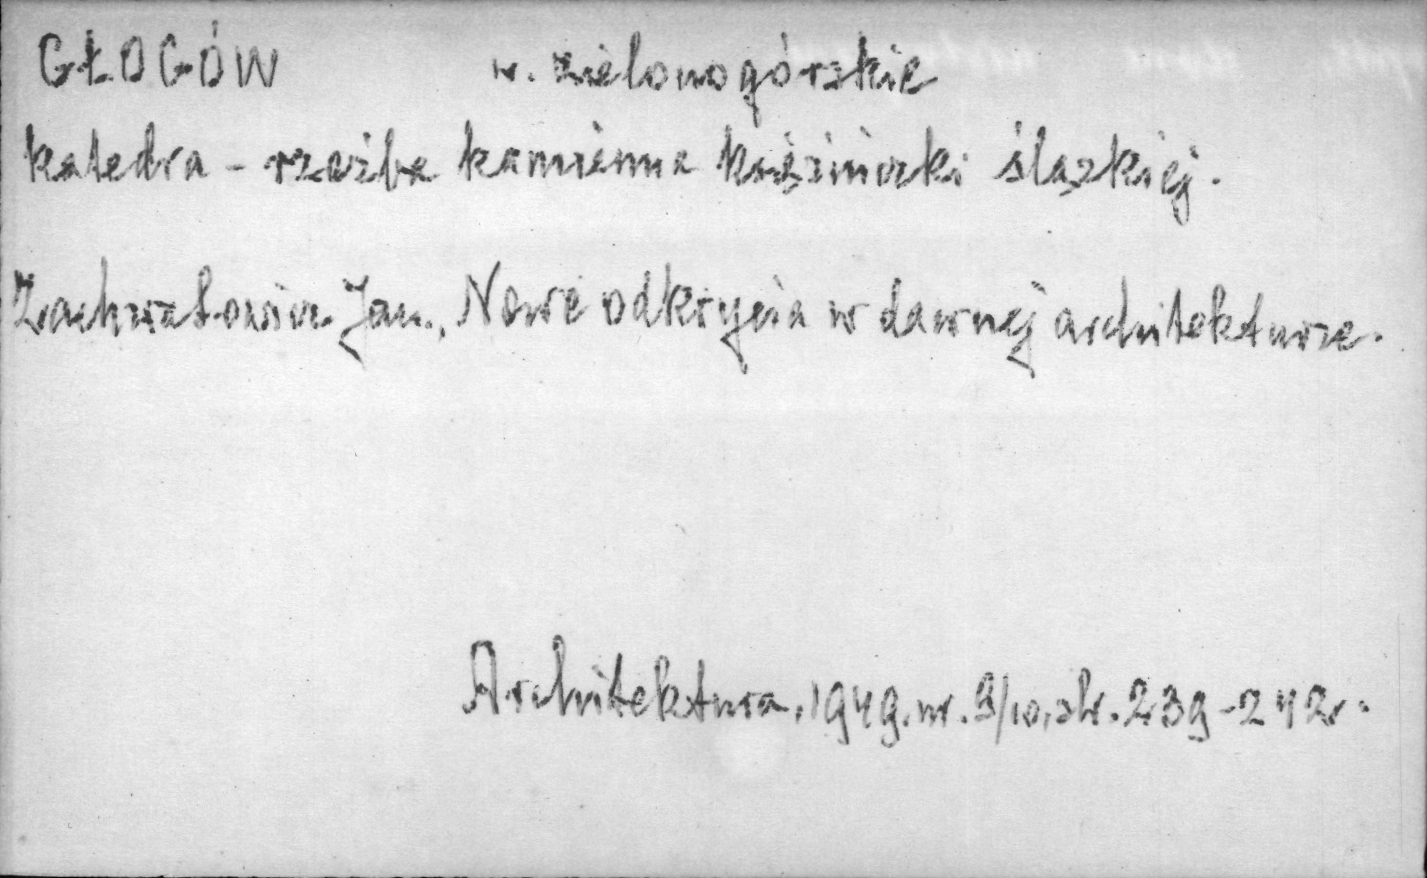 GŁOGÓW w. zielonogórskie
katedra - rzeźba kamienna księżniczki śląskiej.
Zachwatowicz Jan., Nowe odkrycia w dawnej architekturze.
Architektura, 1949. nr. 9/10, str. 239-242.